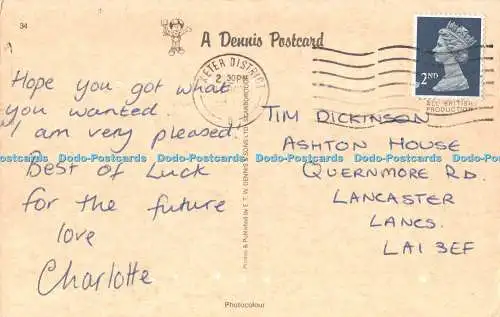 34
A Dennis Postcard
EXETER DISTRICT
2 30PM
2ND
ALL BRITISH
PRODUCTION
Hope you got what
you wanted.
I am very pleased!
Best of Luck
for the future
love
Charlotte
Printed & Published by E. T. W. DENNIS & SONS LTD., SCARBOROUGH
TIM DICKINSON
ASHTON HOUSE
QUERNMORE RD.
LANCASTER
LANCS.
LA1 3EF
Dodo-Postcards Dodo-Postcards Dodo-Postcards Dodo-Postcards Dodo-Postcards
Photocolour